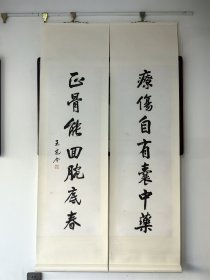 療傷自有囊中藥
正骨能回腕底春